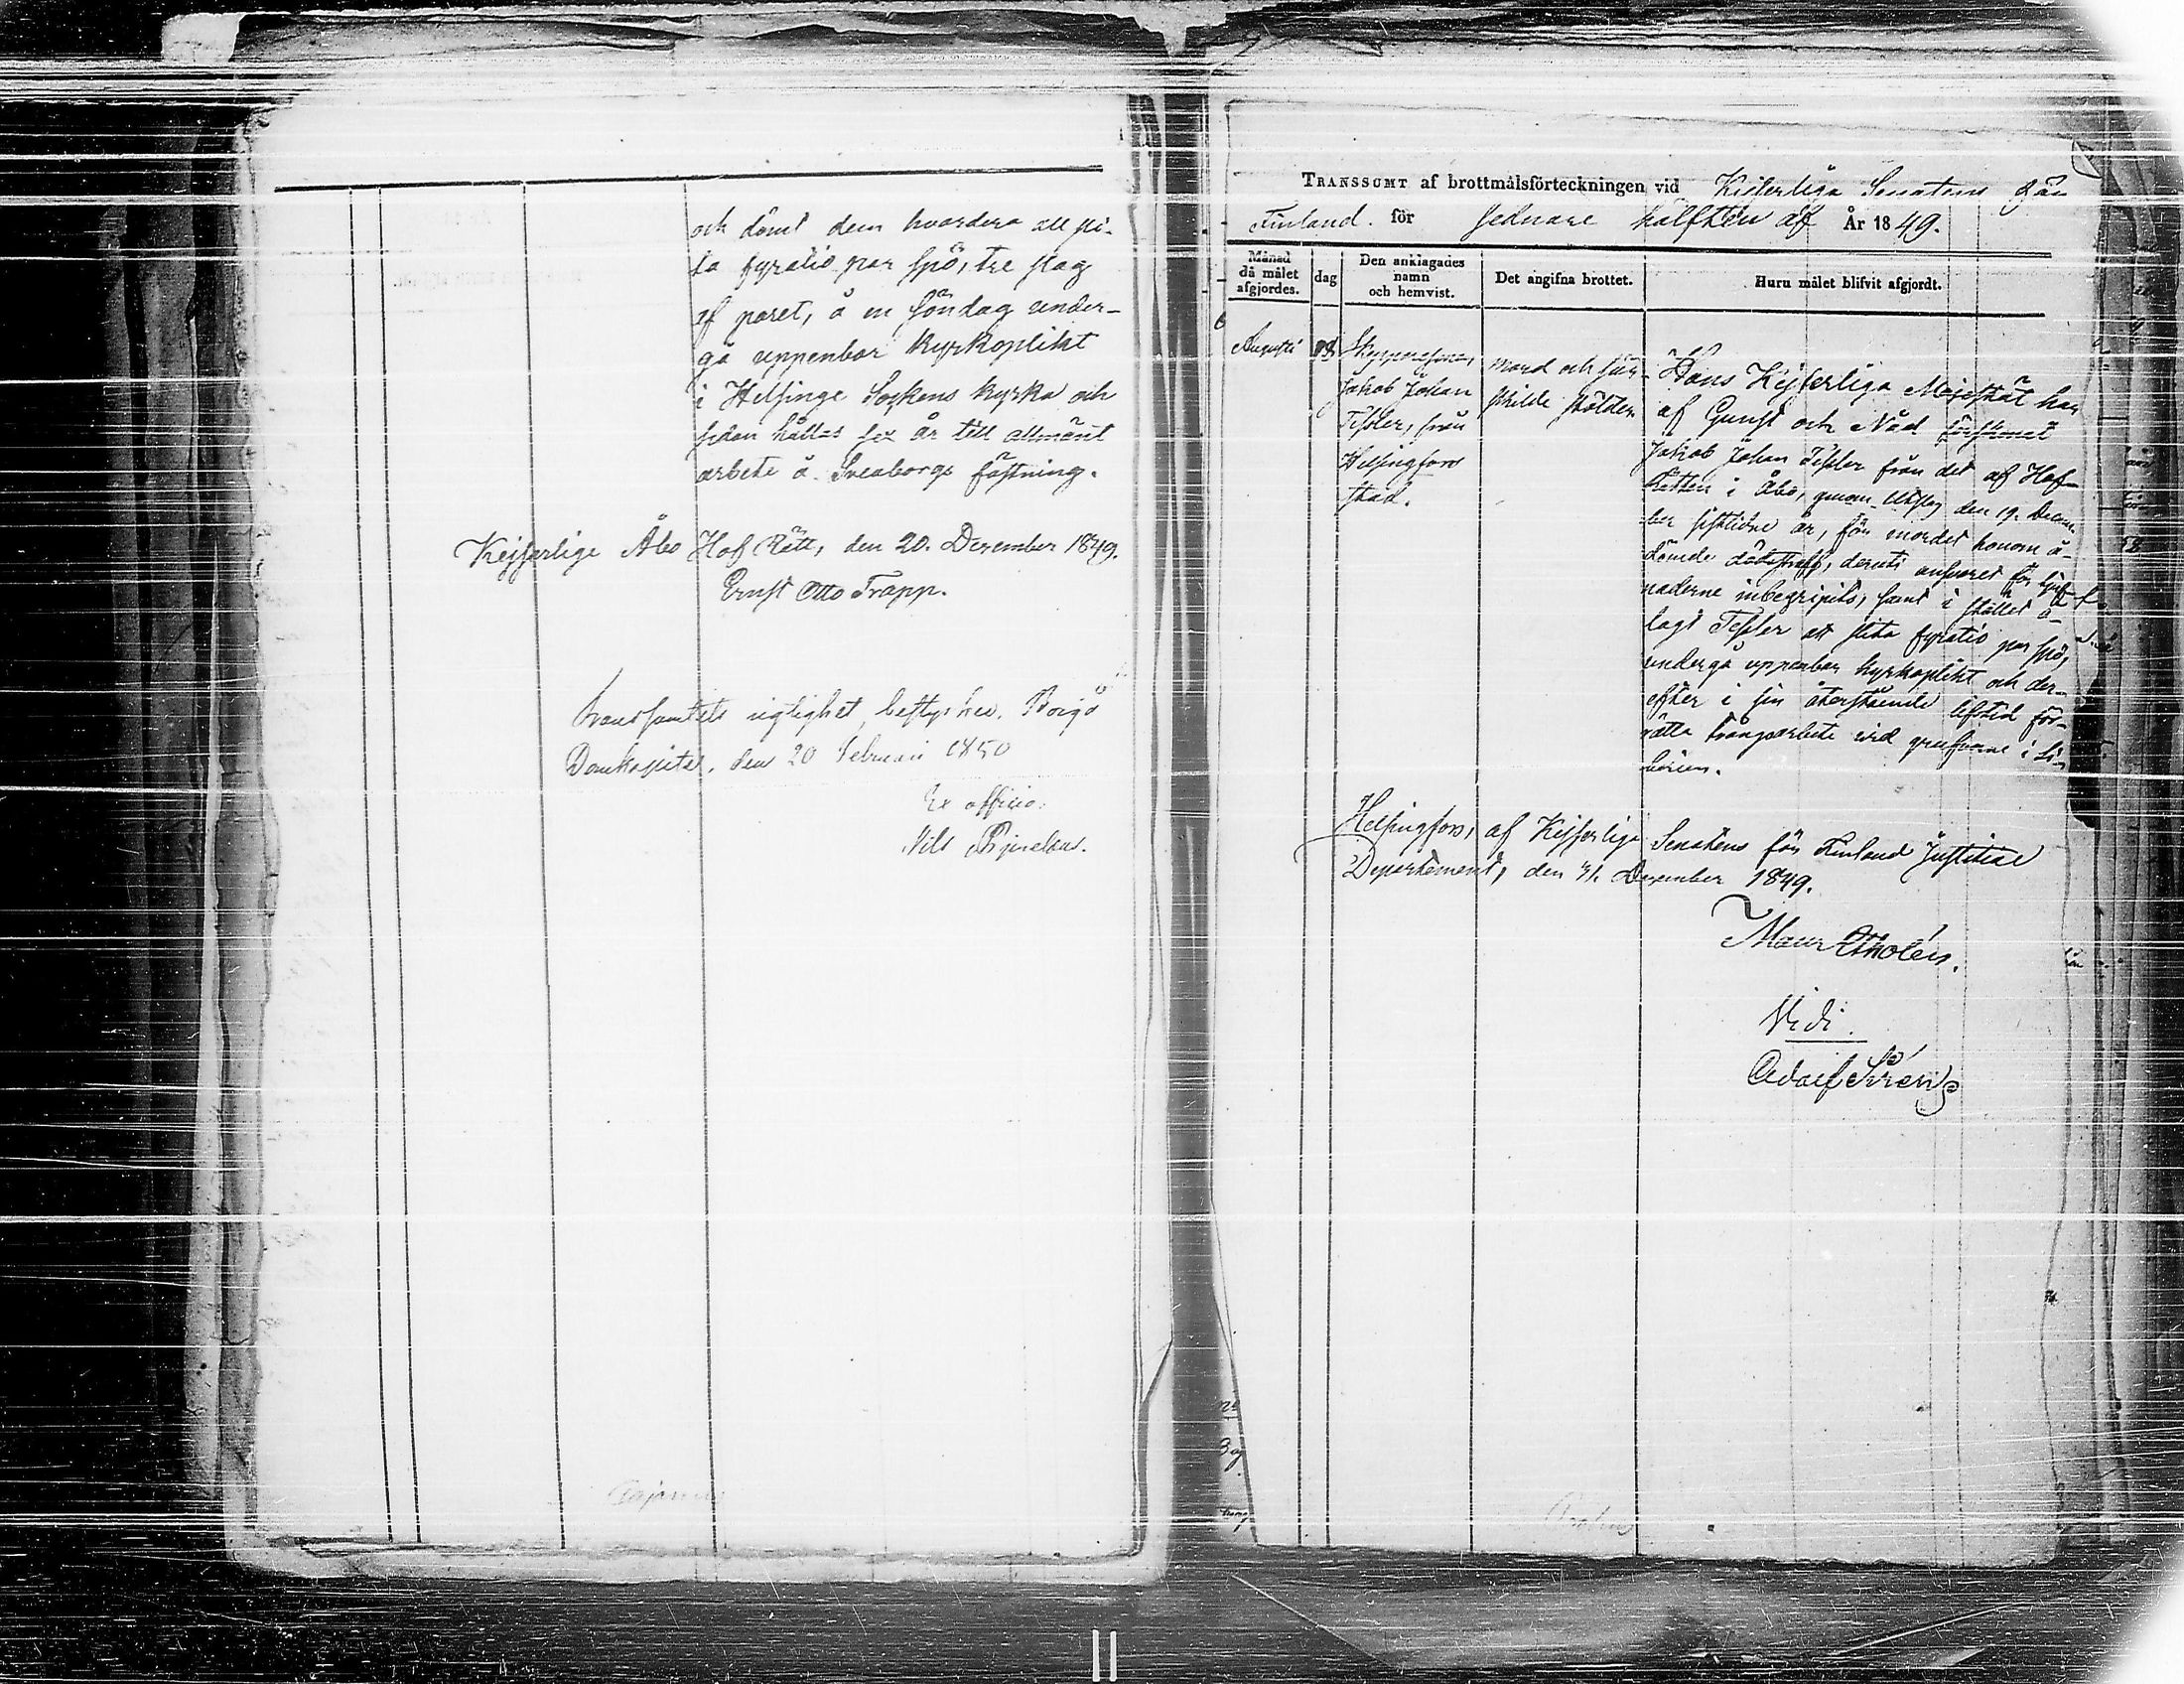 och dömt dem hvardera att sli-
ta fyratio par spö, tre slag
af paret, å en söndag under-
gå uppenbar kyrkoplikt
i Helsinge Sockens kyrka och
sedan hållas sex år till allmänt
arbete å Sveaborgs fästning.
Kejserliga Åbo Hof Rätt, den 20. December 1849.
Ernst Otto Trapp.
Transsumtets rigtighet bestyrkes. Borgå
Domkapitel, den 20 Februari 1850
Ex officio.
Nils
TRANSSUMT af brottmålsförteckningen vid Kejserliga Senatens för
Finland för sednare hälften af År 1849.
Månad då målet afgjordes.
dag
Den anklagades namn och hemvist.
Det angifna brottet.
Huru målet blifvit afgjordt.
Augusti
Jakob Johan
Tesler, från
Helsingfors
stad.
Mord och sär-
skilde stölder
Hans Kejserliga Majestät har
af Gunst och Nåd förskonat
Jakob Johan Tesler från det af Hof-
Rätten i Åbo, genom utslag den 19. Decem-
ber sistlidne år, för mordet honom å-
dömde dödsstraff, deruti ansvaret för tjuf-
naderne inbegripits, samt i stället å-
lagt Tesler att slita fyratio par spö,
undergå uppenbar kyrkoplikt och der-
efter i sin återstående lifstid för-
rätta tvångsarbete vid grufvorne i Si-
birien.
Helsingfors, af Kejserliga Senatens för Finland Justitiae
Departement, den 31. December 1849.
Maur Etholén.
Vidi.
Adolf Sirén